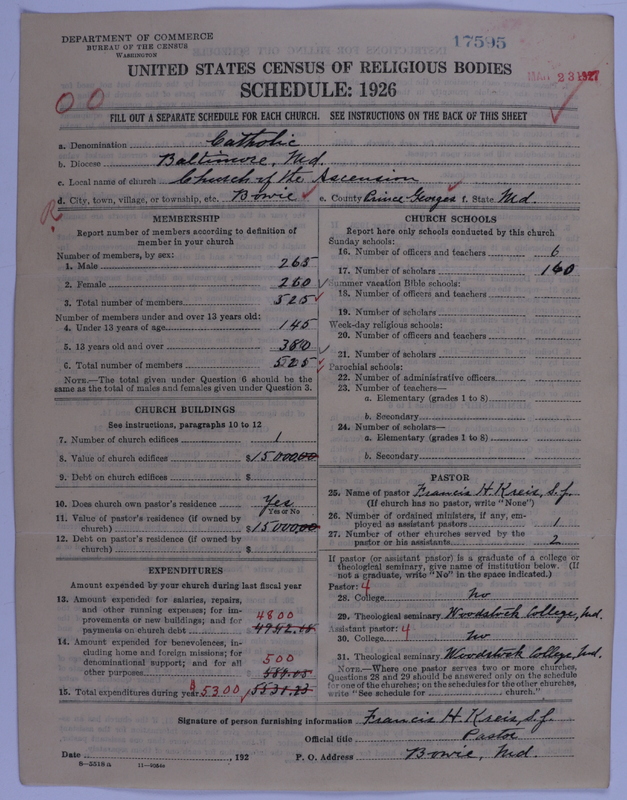 DEPARTMENT OF COMMERCE
BUREAU OF THE CENSUS
WASHINGTON
17595
UNITED STATES CENSUS OF RELIGIOUS BODIES
23 1927
SCHEDULE: 1926
FILL OUT A SEPARATE SCHEDULE FOR EACH CHURCH. SEE INSTRUCTIONS ON THE BACK OF THIS SHEET
a. Denomination Catholic
b. Diocese Baltimore, Md.
c. Local name of church Church of the Ascension
d. City, town, village, or township, etc. Bowie e. County Prince Georges f. State Md.
MEMBERSHIP
Report number of members according to definition of
member in your church
Number of members, by sex:
1. Male 265
2. Female 260
3. Total number of members 525
Number of members under and over 13 years old:
4. Under 13 years of age 145
5. 13 years old and over 380
6. Total number of members 525
NOTE.—The total given under Question 6 should be
same as the total of males and females given under Question 3.
CHURCH BUILDINGS
See instructions, paragraphs 10 to 12
7. Number of church edifices 1
8. Value of church edifices $15000.00
9. Debt on church edifices $
10. Does church own pastor's residence Yes
Yes or No
11. Value of pastor's residence (if owned by
church) $15000.00
12. Debt on pastor's residence (if owned by
church) $
EXPENDITURES
Amount expended by your church during last fiscal year
13. Amount expended for salaries, repairs,
and other running expenses; for im-
provements or new buildings; and for 4800
payments on church debt
14. Amount expended for benevolences, in-
cluding home and foreign missions; for
denominational support; and for all 500
other purposes
15. Total expenditures during year $5300
CHURCH SCHOOLS
Report here only schools conducted by this church
Sunday schools:
16. Number of officers and teachers 6
17. Number of scholars 160
Summer vacation Bible schools:
18. Number of officers and teachers
19. Number of scholars
Week-day religious schools:
20. Number of officers and teachers
21. Number of scholars
Parochial schools:
22. Number of administrative officers
23. Number of teachers—
a. Elementary (grades 1 to 8)
b. Secondary
24. Number of scholars—
a. Elementary (grades 1 to 8)
b. Secondary
PASTOR
25. Name of pastor Francis H. Kreis, S.J.
(If church has no pastor, write "None")
26. Number of ordained ministers, if any, em-
ployed as assistant pastors 1
27. Number of other churches served by the
pastor or his assistants 2
If pastor (or assistant pastor) is a graduate of a college or
theological seminary, give name of institution below. (If
not a graduate, write "No" in the space indicated.)
Pastor: 4
28. College No
29. Theological seminary Woodstock College, Md.
Assistant pastor: 4
30. College No
31. Theological seminary Woodstock College, Md.
NOTE.—Where one pastor serves two or more churches,
Questions 28 and 29 should be answered only on the schedule
for one of the churches; on the schedules for the other churches,
write "See schedule for church."
Signature of person furnishing information Francis H. Kreis, S.J.
Official title Pastor
Date , 192 P. O. Address Bowie, Md.
8—5318 a